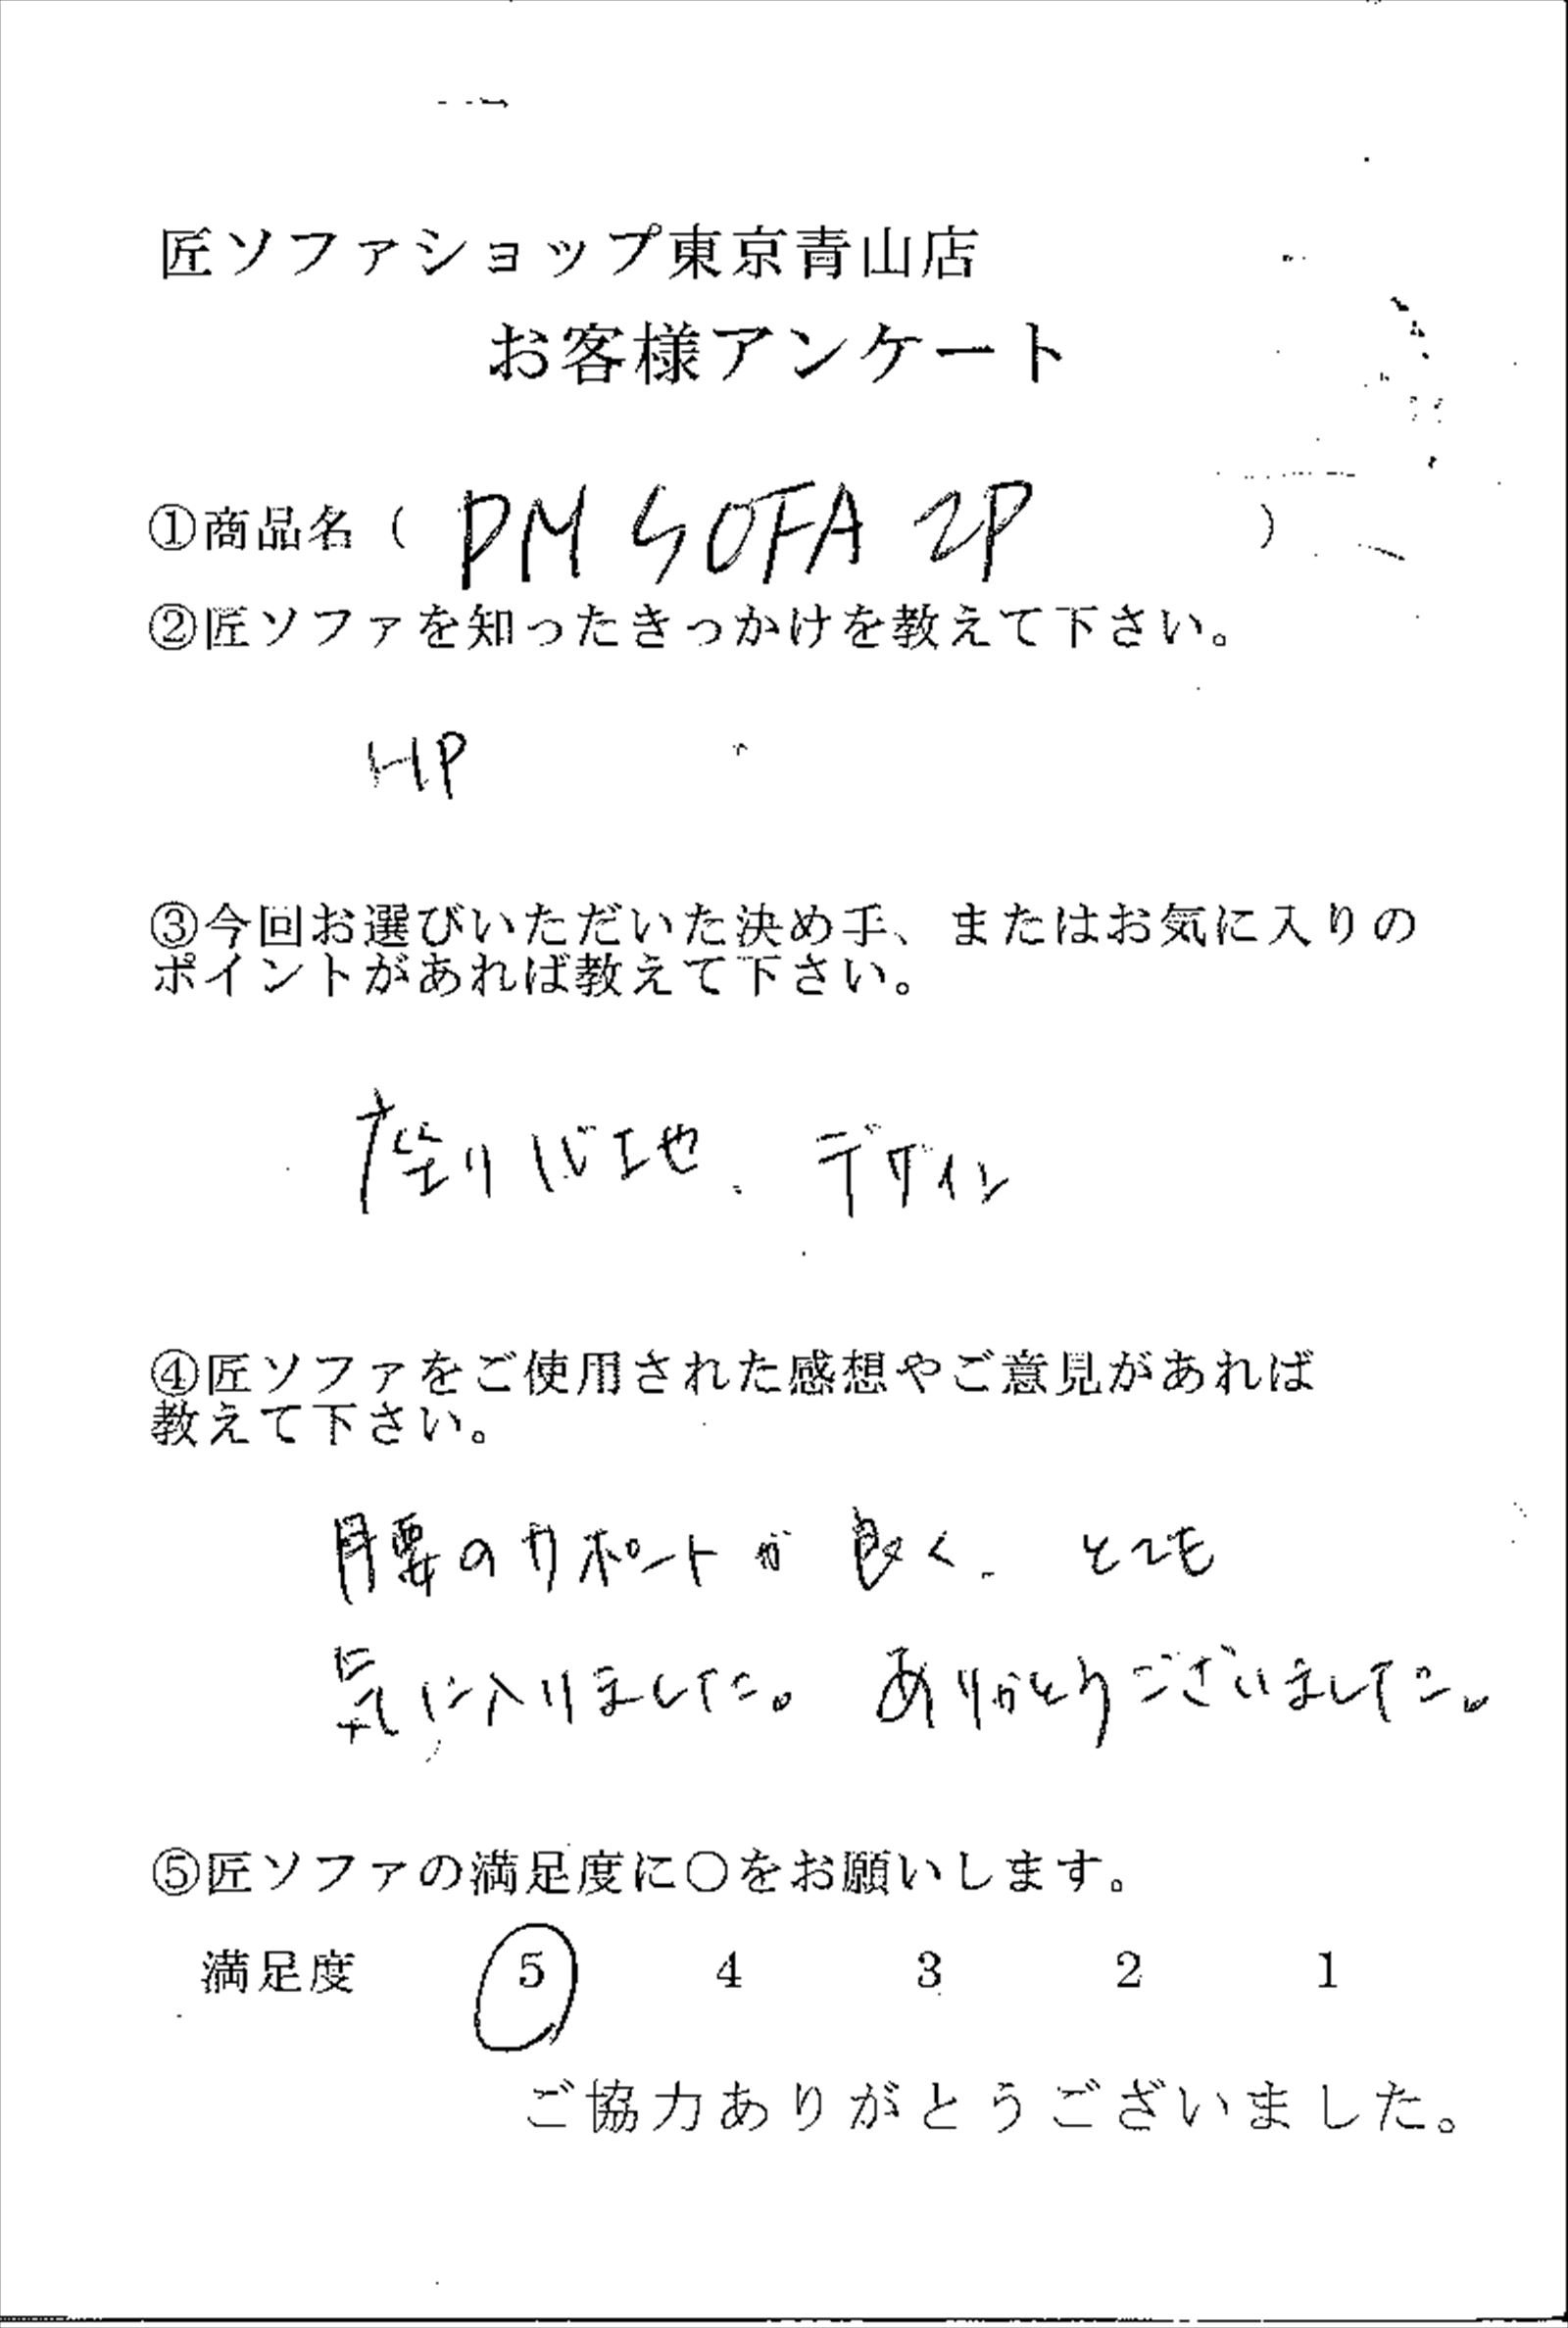 匠ソファショップ東京青山店
お客様アンケート
①商品名（ DM SOFA 2P ）
②匠ソファを知ったきっかけを教えて下さい。
HP
③今回お選びいただいた決め手、またはお気に入りの
ポイントがあれば教えて下さい。
座り心地、デザイン
④匠ソファをご使用された感想やご意見があれば
教えて下さい。
腰のサポートが良く、とても
気に入りました。ありがとうございました。
⑤匠ソファの満足度に〇をお願いします。
満足度 5 4 3 2 1
ご協力ありがとうございました。